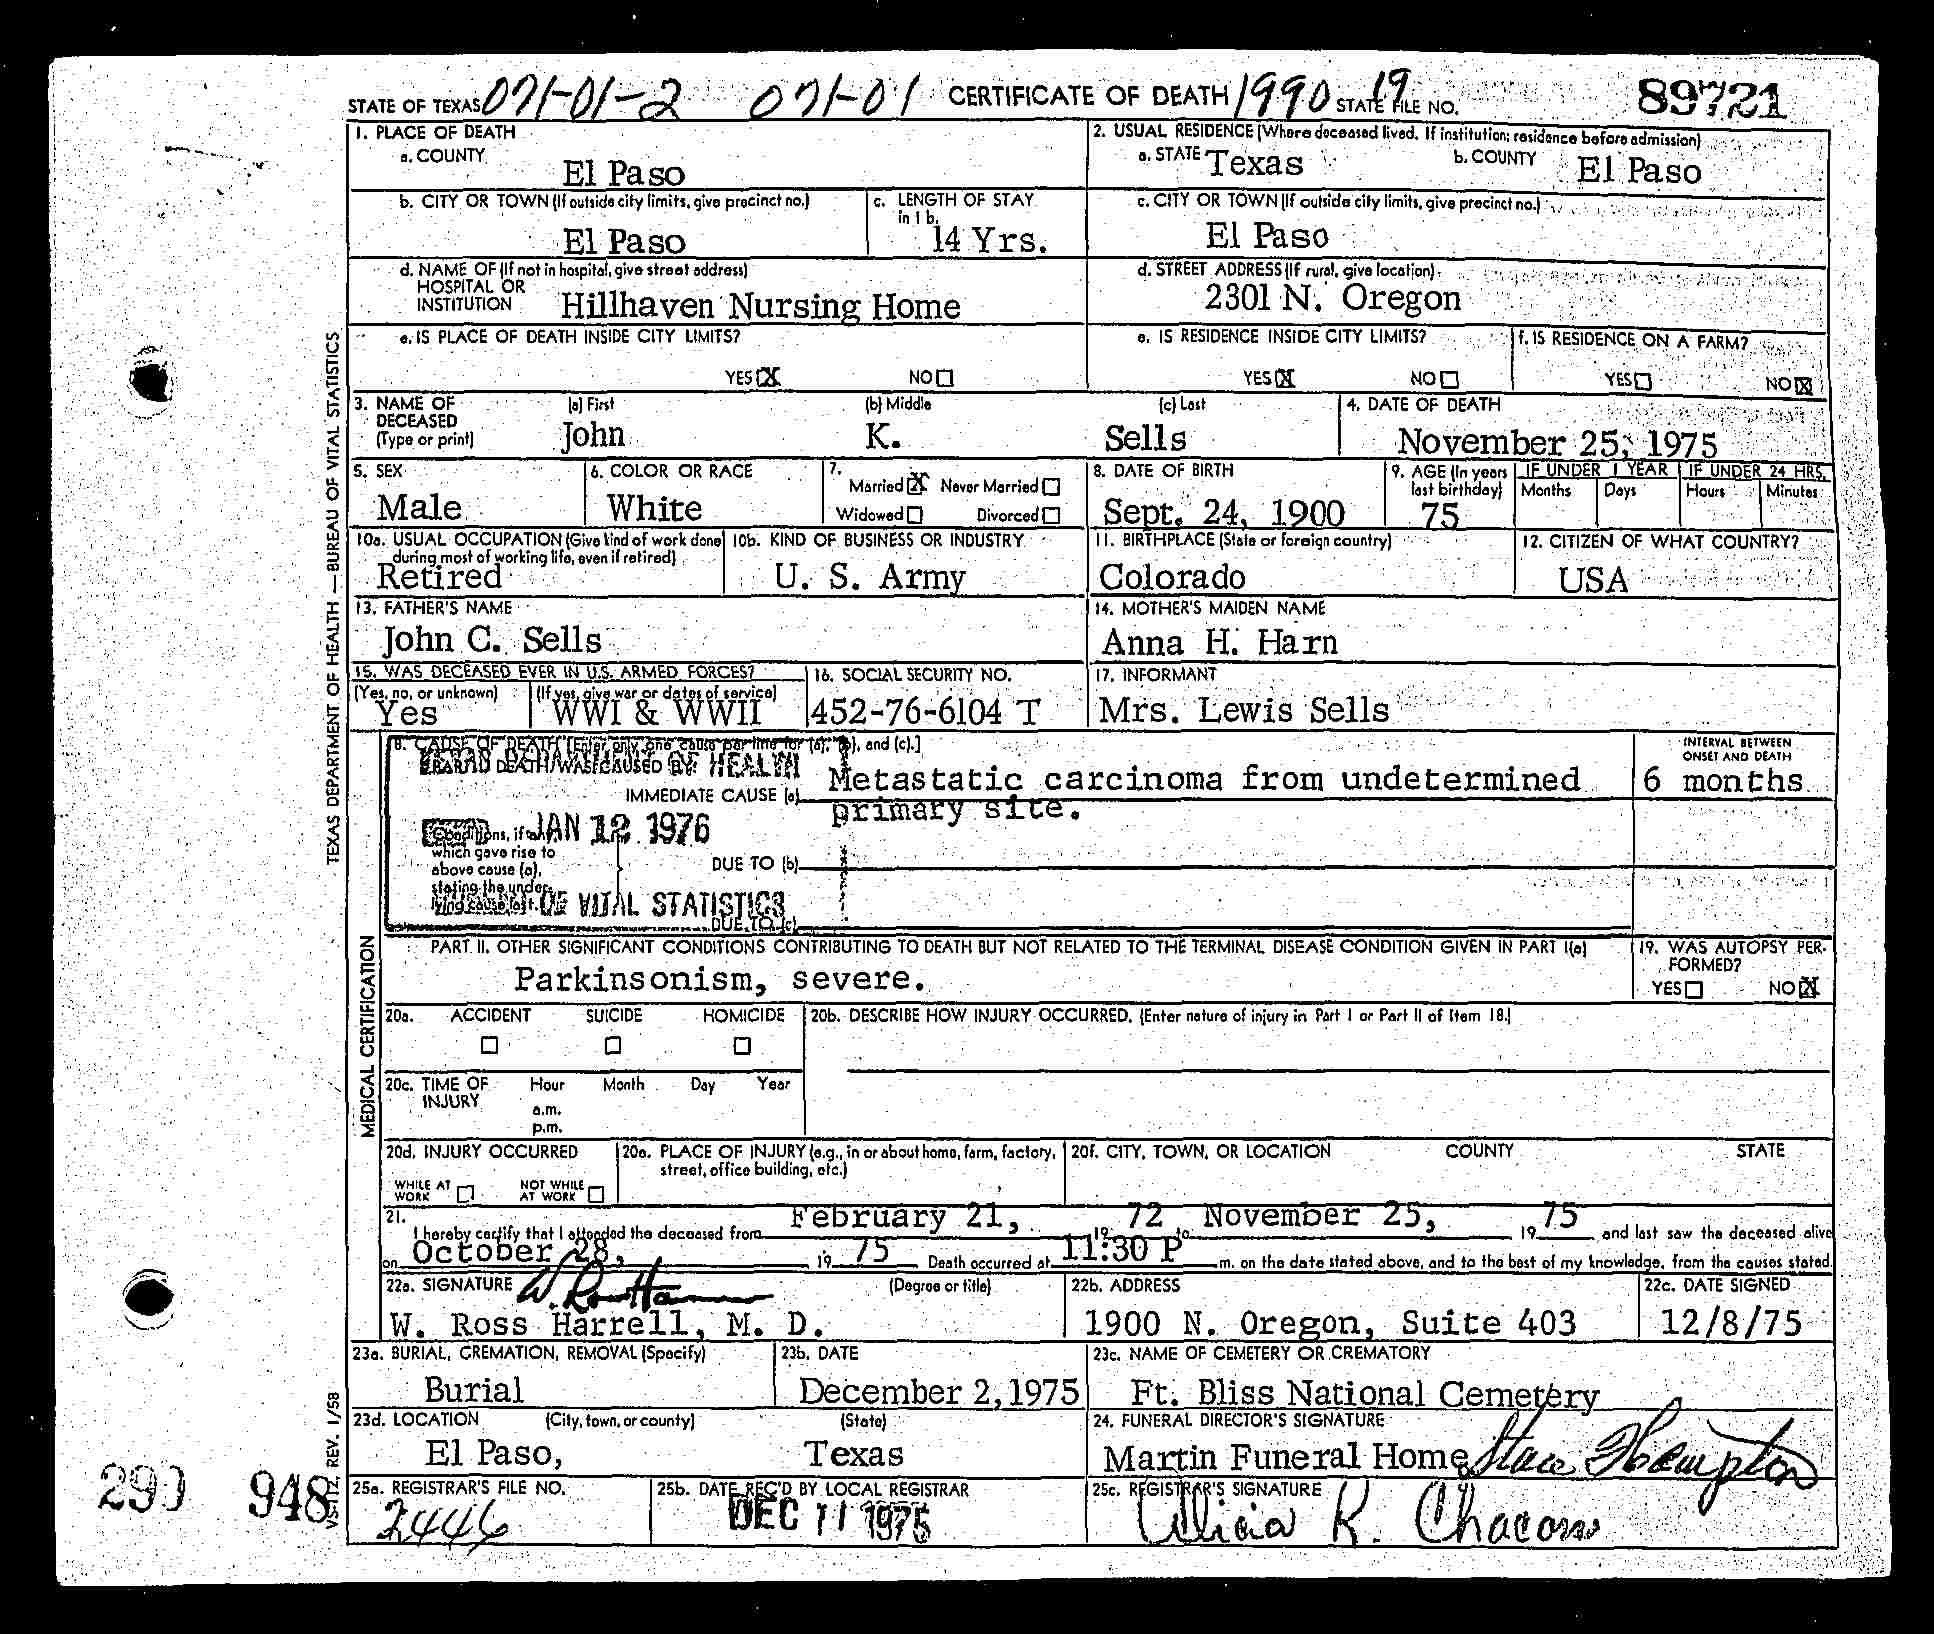 STATE OF TEXAS 071-01-2 071-01 CERTIFICATE OF DEATH 1990 19 STATE FILE NO. 89721
1. PLACE OF DEATH
a. COUNTY
El Paso
2. USUAL RESIDENCE (Where deceased lived. If institution: residence before admission)
a. STATE Texas b. COUNTY El Paso
b. CITY OR TOWN (If outside city limits, give precinct no.)
El Paso
c. LENGTH OF STAY
in 1 b.
14 Yrs.
c. CITY OR TOWN (If outside city limits, give precinct no.)
El Paso
d. NAME OF (If not in hospital, give street address)
HOSPITAL OR
INSTITUTION Hillhaven Nursing Home
d. STREET ADDRESS (If rural, give location)
2301 N. Oregon
e. IS PLACE OF DEATH INSIDE CITY LIMITS?
YES X NO
e. IS RESIDENCE INSIDE CITY LIMITS?
YES X NO
f. IS RESIDENCE ON A FARM?
YES NO X
3. NAME OF
DECEASED
(Type or print)
(a) First (b) Middle (c) Last
John K. Sells
4. DATE OF DEATH
November 25, 1975
5. SEX
Male
6. COLOR OR RACE
White
7.
Married X Never Married
Widowed Divorced
8. DATE OF BIRTH
Sept. 24, 1900
9. AGE (In years
last birthday)
75
IF UNDER 1 YEAR
Months Days
IF UNDER 24 HRS.
Hours Minutes
10a. USUAL OCCUPATION (Give kind of work done
during most of working life, even if retired)
Retired
10b. KIND OF BUSINESS OR INDUSTRY
U. S. Army
11. BIRTHPLACE (State or foreign country)
Colorado
12. CITIZEN OF WHAT COUNTRY?
USA
13. FATHER'S NAME
John C. Sells
14. MOTHER'S MAIDEN NAME
Anna H. Harn
15. WAS DECEASED EVER IN U.S. ARMED FORCES?
(Yes, no, or unknown) (If yes, give war or dates of service)
Yes WWI & WWII
16. SOCIAL SECURITY NO.
452-76-6104 T
17. INFORMANT
Mrs. Lewis Sells
18. CAUSE OF DEATH [Enter only one cause per line for (a), (b), and (c).]
DEATH WAS CAUSED BY: HEALTH
IMMEDIATE CAUSE (a) Metastatic carcinoma from undetermined
primary site.
INTERVAL BETWEEN
ONSET AND DEATH
6 months
JAN 12 1976
Conditions, if any,
which gave rise to
above cause (a),
stating the under-
lying cause last.
DUE TO (b)
OF VITAL STATISTICS
DUE TO (c)
PART II. OTHER SIGNIFICANT CONDITIONS CONTRIBUTING TO DEATH BUT NOT RELATED TO THE TERMINAL DISEASE CONDITION GIVEN IN PART I(a)
Parkinsonism, severe.
19. WAS AUTOPSY PER-
FORMED?
YES NO X
20a. ACCIDENT SUICIDE HOMICIDE
20b. DESCRIBE HOW INJURY OCCURRED. (Enter nature of injury in Part I or Part II of Item 18.)
20c. TIME OF
INJURY
Hour Month Day Year
a.m.
p.m.
20d. INJURY OCCURRED
WHILE AT
WORK
NOT WHILE
AT WORK
20e. PLACE OF INJURY (e.g., in or about home, farm, factory,
street, office building, etc.)
20f. CITY, TOWN, OR LOCATION COUNTY STATE
21.
I hereby certify that I attended the deceased from February 21, 19 72 to November 25, 19 75 and last saw the deceased alive
on October 28, 19 75 Death occurred at 11:30 P m. on the date stated above, and to the best of my knowledge, from the causes stated.
22a. SIGNATURE (Degree or title)
W. Ross Harrell, M. D.
22b. ADDRESS
1900 N. Oregon, Suite 403
22c. DATE SIGNED
12/8/75
23a. BURIAL, CREMATION, REMOVAL (Specify)
Burial
23b. DATE
December 2, 1975
23c. NAME OF CEMETERY OR CREMATORY
Ft. Bliss National Cemetery
23d. LOCATION (City, town, or county) (State)
El Paso, Texas
24. FUNERAL DIRECTOR'S SIGNATURE
Martin Funeral Home
25a. REGISTRAR'S FILE NO.
2446
25b. DATE REC'D BY LOCAL REGISTRAR
DEC 11 1975
25c. REGISTRAR'S SIGNATURE
Alicia R. Chacon
TEXAS DEPARTMENT OF HEALTH — BUREAU OF VITAL STATISTICS
MEDICAL CERTIFICATION
VS-112, REV. 1/58
290 948